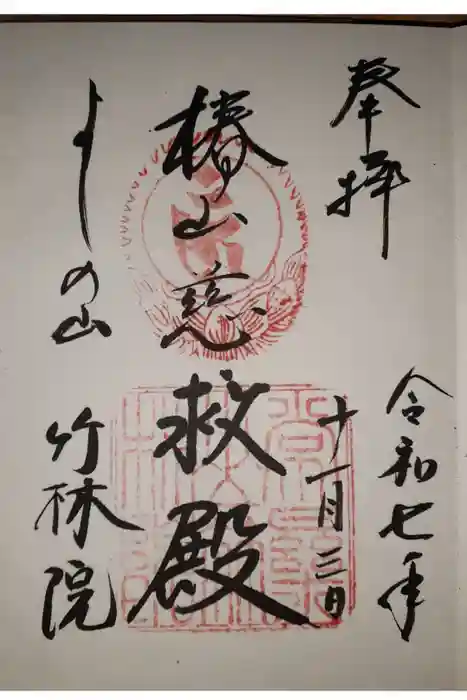 奉拝
令和七年
十一月三日
椿山慈救殿
よしの山
竹林院